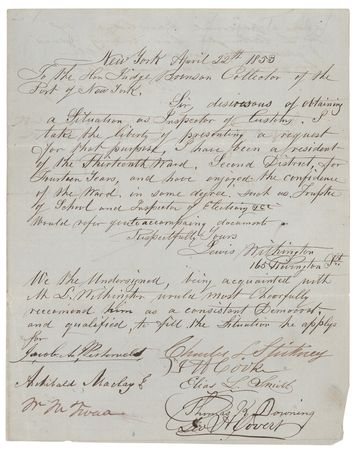 New York April 22th 1853
To the Hon Judge Bronson Collector of the
Port of New York.
Sir, desirous of obtaining
a Situation as Inspector of Customs. I
take the liberty of presenting a request
for that purpose, I have been a resident
of the Thirteenth Ward. Second District, for
fourteen Years, and have enjoyed the confidence
of the Ward. in some degree, such as. Trustee
of School and Inspector of Election &c &c
Would refer you to accompaning documents
Respectfully Yours
Lewis Withington
165 Rivington St.
We the Undersigned, being acquainted with
Mr L. Withington would most Cheerfully
reccomend him as a consistent Democrat,
and qualified to fill the Situation he applys
for
Jacob A. Westervelt
Charles S.
H Cook
Archibald Maclay Jr
Elias L. Smith
Wm M Tweed
Thomas K Downing
H Covert